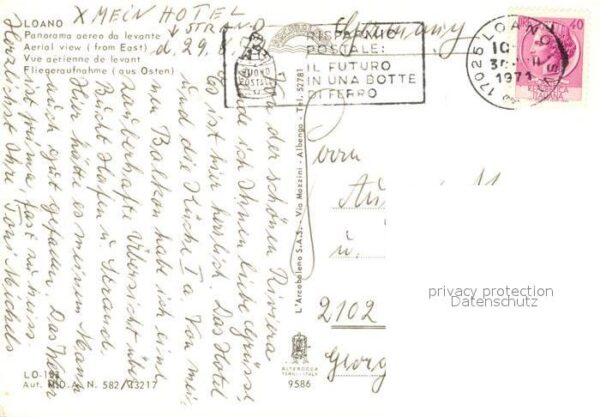 LOANO
Panorama aereo da levante
Aerial view (from East)
Vue aerienne de levant
Fliegeraufnahme (aus Osten)
X MEIN HOTEL
↓ STRAND
d. 29.8.
Germany
RISPARMIO
POSTALE:
IL FUTURO
IN UNA BOTTE
DI FERRO
BUONO
POSTALE
17025 LOANO
1971
40
REPUBBLICA
ITALIANA
Von der schönen Riviera
sende ich Ihnen liebe Grüsse
Es ist hier herrlich. Das Hotel
und die Küche I a. Von mei-
nem Balkon habe ich eine
zauberhafte Übersicht über
Bucht Hafen u. Strand.
Hier hätte es meinem Mann
auch gut gefallen. Das Wetter
ist prima, fast zu heiss.
Herzlichst Ihre Toni Michels
L'Arcobaleno S.A.S. - Via Mazzini - Albenga - Tel. 52781
Herrn
u.
2102
Georg
privacy protection
Datenschutz
ALTEROCCA
TERNI-ITALY
9586
LO-198
Aut. M.D.A. N. 582/43217